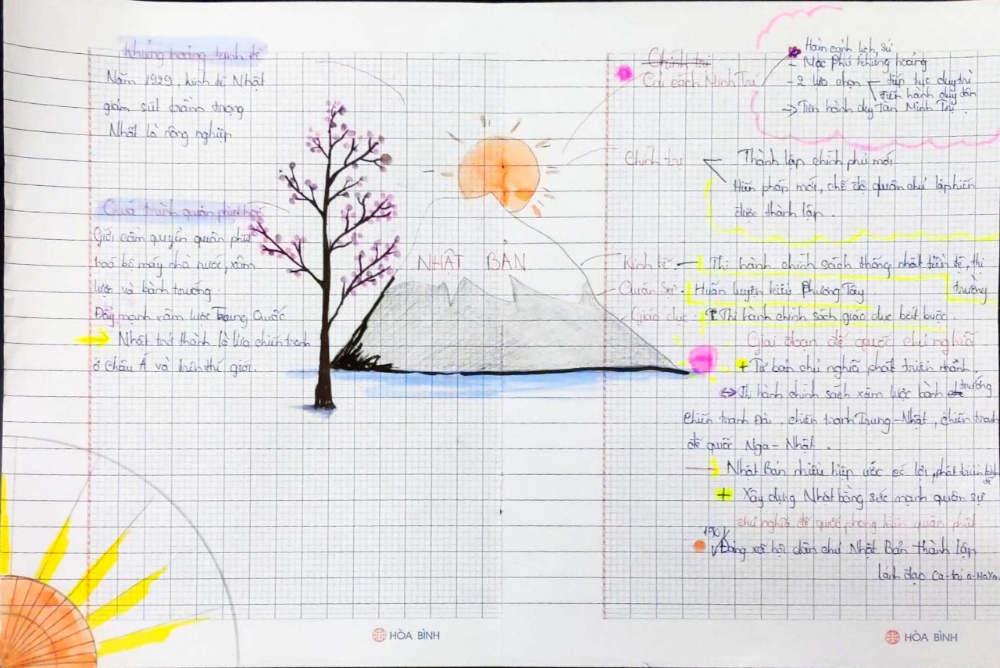 Khủng hoảng kinh tế
Năm 1929, kinh tế Nhật
giảm sút trầm trọng
Nhất là nông nghiệp
Quá trình quân phiệt hoá
Giới cầm quyền quân phiệt
hoá bộ máy nhà nước, xâm
lược và bành trướng
Đẩy mạnh xâm lược Trung Quốc
→ Nhật trở thành lò lửa chiến tranh
ở Châu Á và trên thế giới.
NHẬT BẢN
Chính trị
Cải cách Minh Trị
Hoàn cảnh lịch sử
- Mạc Phủ khủng hoảng
- 2 lựa chọn
tiếp tục duy trì
tiến hành duy tân
→ Tiến hành duy Tân Minh Trị
Chính trị
Thành lập chính phủ mới
Hiến pháp mới, chế độ quân chủ lập hiến
được thành lập.
Kinh tế - Thi hành chính sách thống nhất tiền tệ, thị
trường
Quân sự - Huấn luyện kiểu Phương Tây
Giáo dục - Thi hành chính sách giáo dục bắt buộc.
Giai đoạn đế quốc chủ nghĩa
+ Tư bản chủ nghĩa phát triển nhanh
→ Thi hành chính sách xâm lược bành trướng
Chiến tranh Đài, chiến tranh Trung-Nhật, chiến tranh
đế quốc Nga-Nhật.
→ Nhật Bản nhiều hiệp ước có lợi, phát triển kinh
tế
+ Xây dựng Nhật bằng sức mạnh quân sự
chủ nghĩa đế quốc phong kiến quân phiệt
1901
Đảng xã hội dân chủ Nhật Bản thành lập
Lãnh đạo Ca-tai-a-Maxen
HÒA BÌNH
HÒA BÌNH